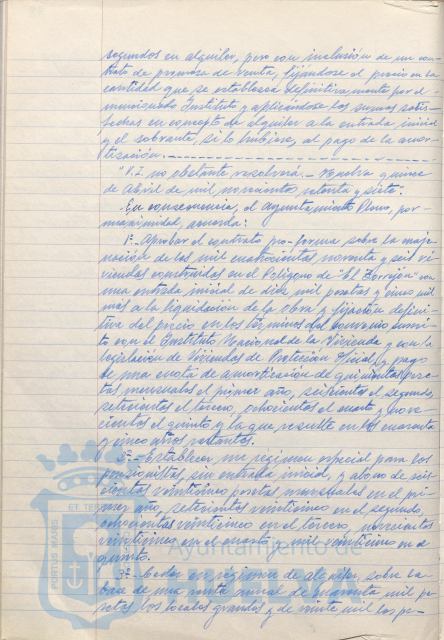 segundos en alquiler, pero con inclusión de un con-
trato de promesa de venta, fijándose el precio en la
cantidad que se establezca definitivamente por el
mencionado Instituto y aplicándose las sumas satis-
fechas en concepto de alquiler a la entrada inicial
y el sobrante, si lo hubiese, al pago de la amor-
tización.
"V.I. no obstante resolverá.- Huelva quince
de Abril de mil novecientos setenta y siete.
En consecuencia, el Ayuntamiento Pleno, por
unanimidad, acuerda:
1º.- Aprobar el contrato pro-forma sobre la enaje-
nación de las mil cuatrocientas noventa y seis vi-
viendas construidas en el Polígono de "El Torrejón" con
una entrada inicial de diez mil pesetas y cinco mil
más a la liquidación de la obra y fijación defini-
tiva del precio en los términos del convenio suscri-
to con el Instituto Nacional de la Vivienda y con la
legislación de Viviendas de Protección Oficial, y pago
de una cuota de amortización de quinientas pese-
tas mensuales el primer año, seiscientas el segundo,
setecientas el tercero, ochocientas el cuarto y nove-
cientas el quinto y la que resulte en los cuarenta
y cinco años restantes.
2º.- Establecer un régimen especial para los
pensionistas, sin entrada inicial, y abono de seis-
cientas veinticinco pesetas mensuales en el pri-
mer año, setecientas veinticinco en el segundo,
ochocientas veinticinco en el tercero, novecientas
veinticinco en el cuarto y mil veinticinco en el
quinto.
3º.- Ceder en régimen de alquiler, sobre la
base de una renta anual de cuarenta mil pe-
setas los locales grandes y de veinte mil los pe-
Ayuntamiento de
PORTUS MARIS
ET TER